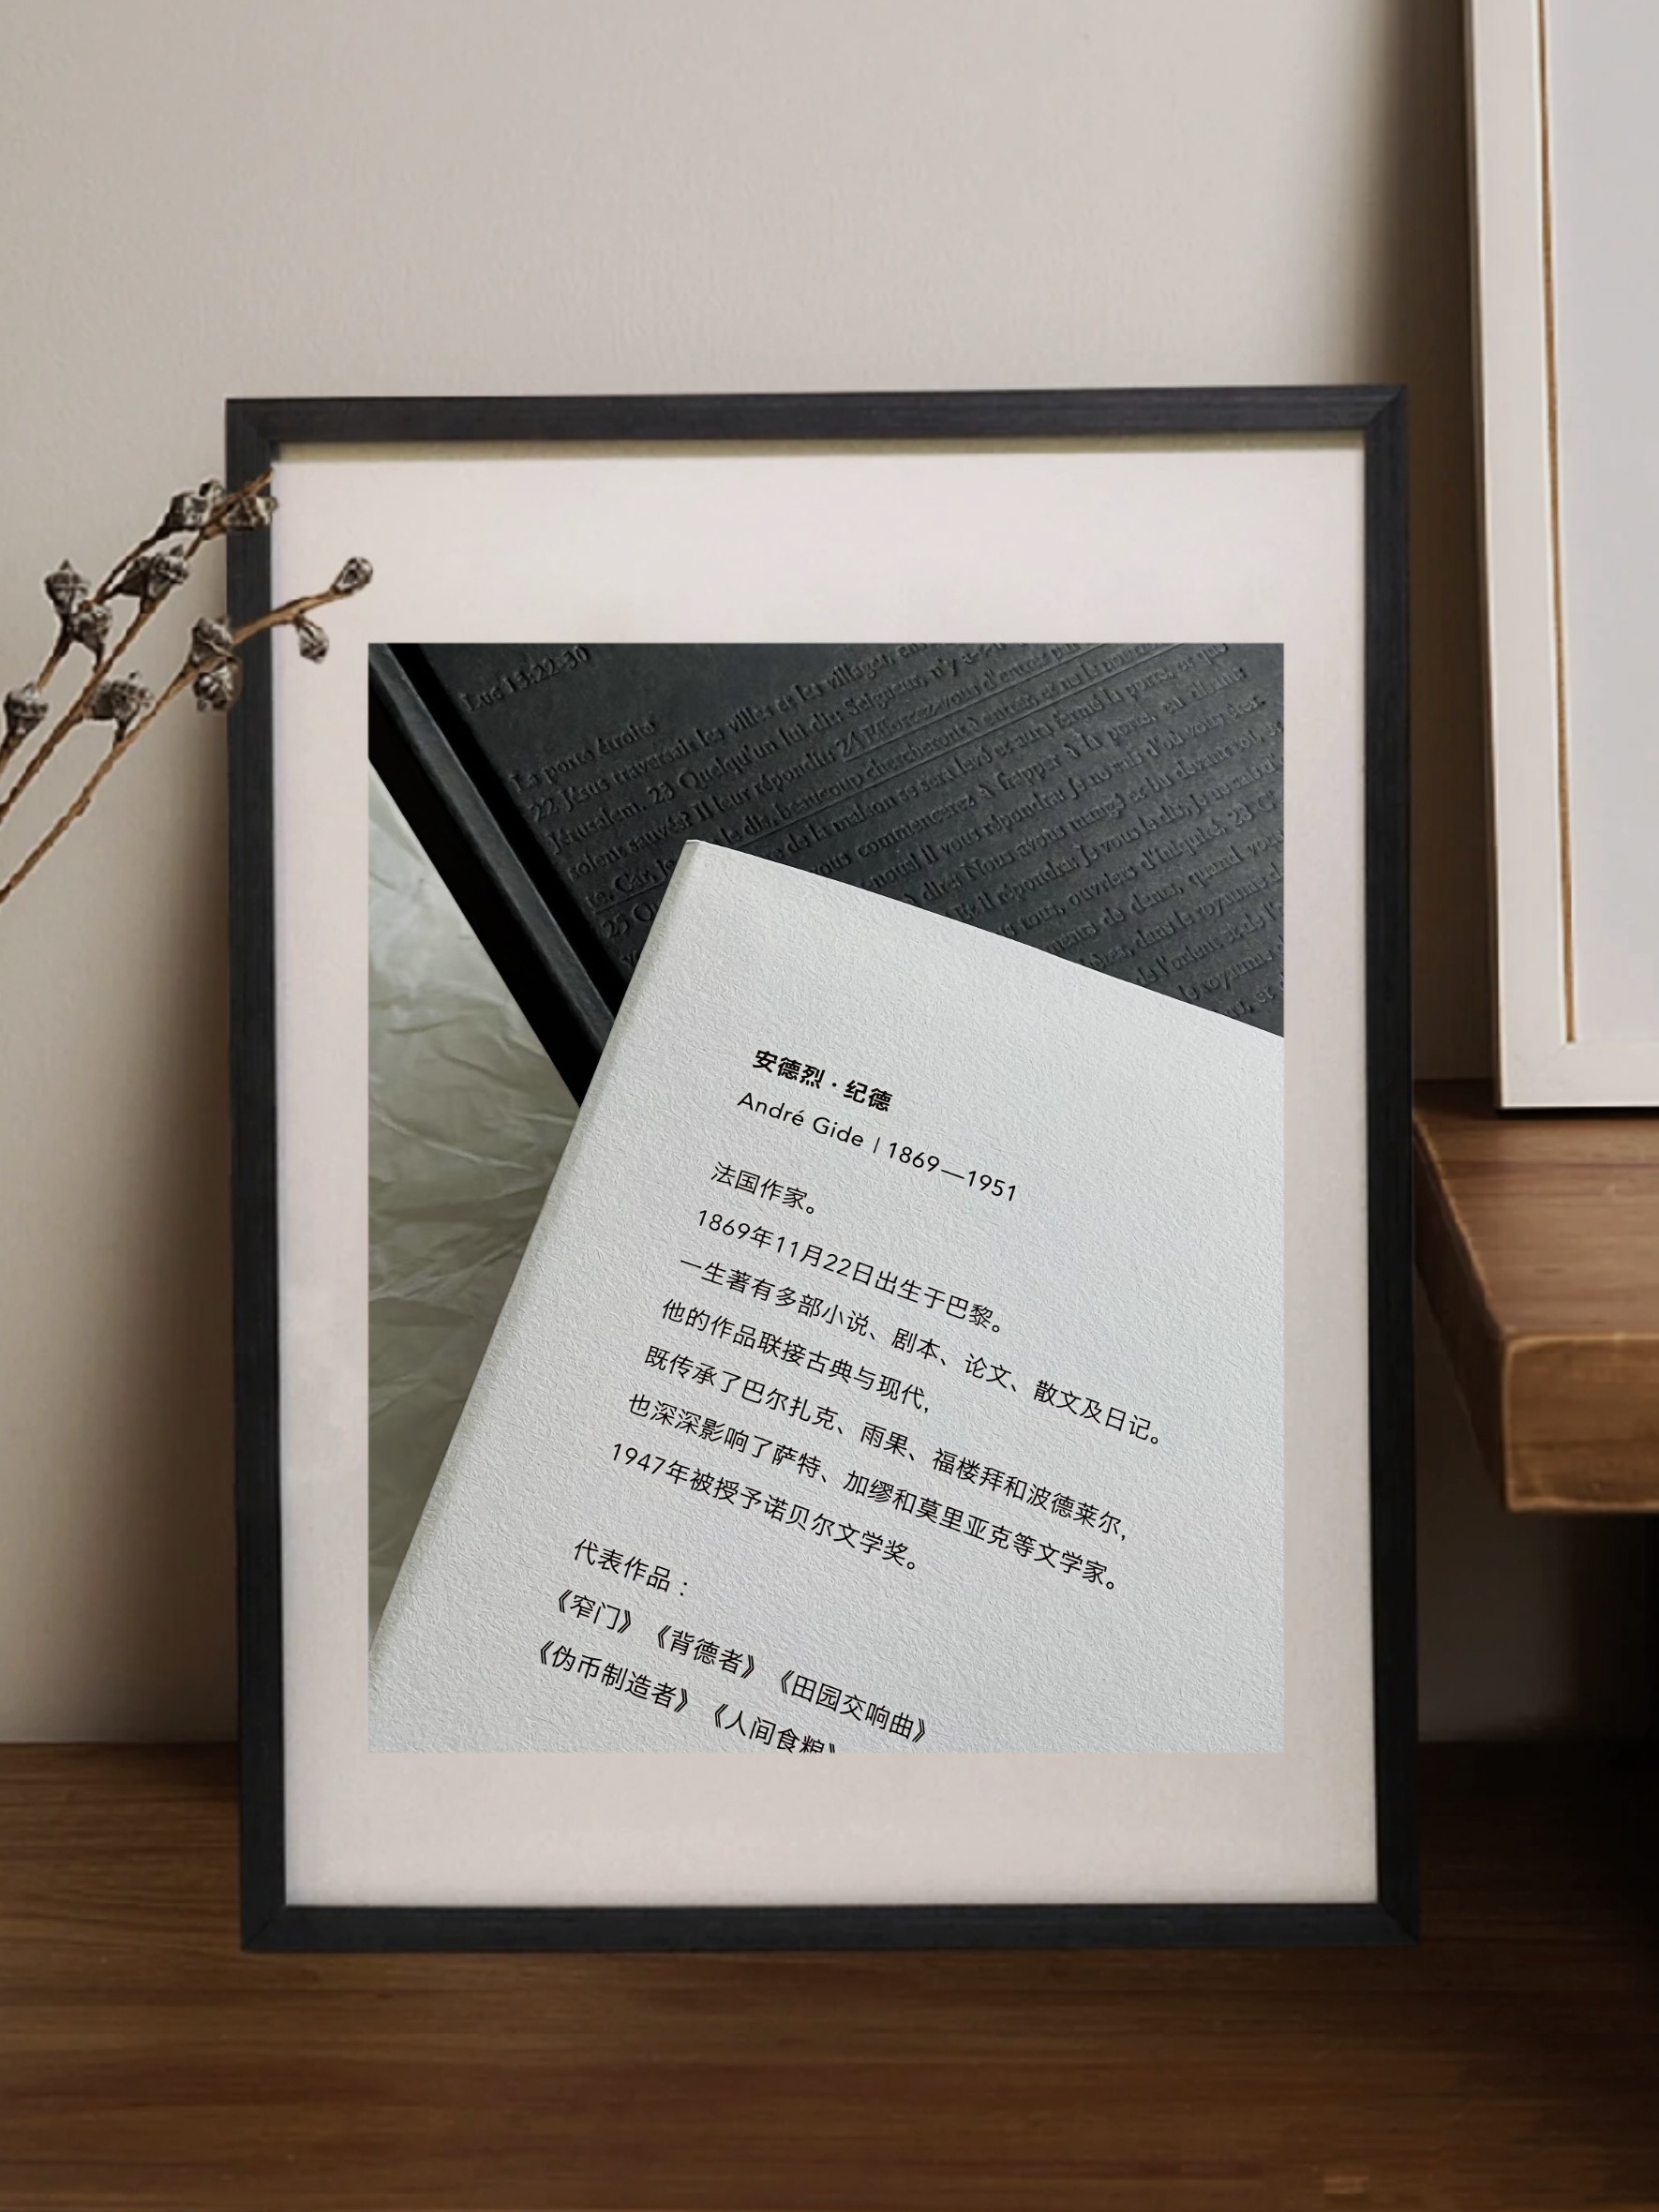 Luc 13:22-30
La porte étroite
22 Jésus traversait les villes et les villages, en
Jérusalem. 23 Quelqu'un lui dit: Seigneur, n'y a-t-il
soient sauvés? Il leur répondit: 24 Efforcez-vous d'entrer par
te. Car, je le dis, beaucoup chercheront à entrer, et ne le pourront
25 de la maison se sera levé et aura fermé la porte, et que
vous commencerez à frapper à la porte, en disant:
nous! Il vous répondra: Je ne sais d'où vous êtes.
à dire: Nous avons mangé et bu devant toi, et
Et il répondra: Je vous le dis, je ne sais d'où
tous, ouvriers d'iniquité. 28 C'
ments de dents, quand vous
dans le royaume de
l'orient et de l'
royaume
安德烈·纪德
André Gide | 1869—1951
法国作家。
1869年11月22日出生于巴黎。
一生著有多部小说、剧本、论文、散文及日记。
他的作品联接古典与现代，
既传承了巴尔扎克、雨果、福楼拜和波德莱尔，
也深深影响了萨特、加缪和莫里亚克等文学家。
1947年被授予诺贝尔文学奖。
代表作品：
《窄门》《背德者》《田园交响曲》
《伪币制造者》《人间食粮》